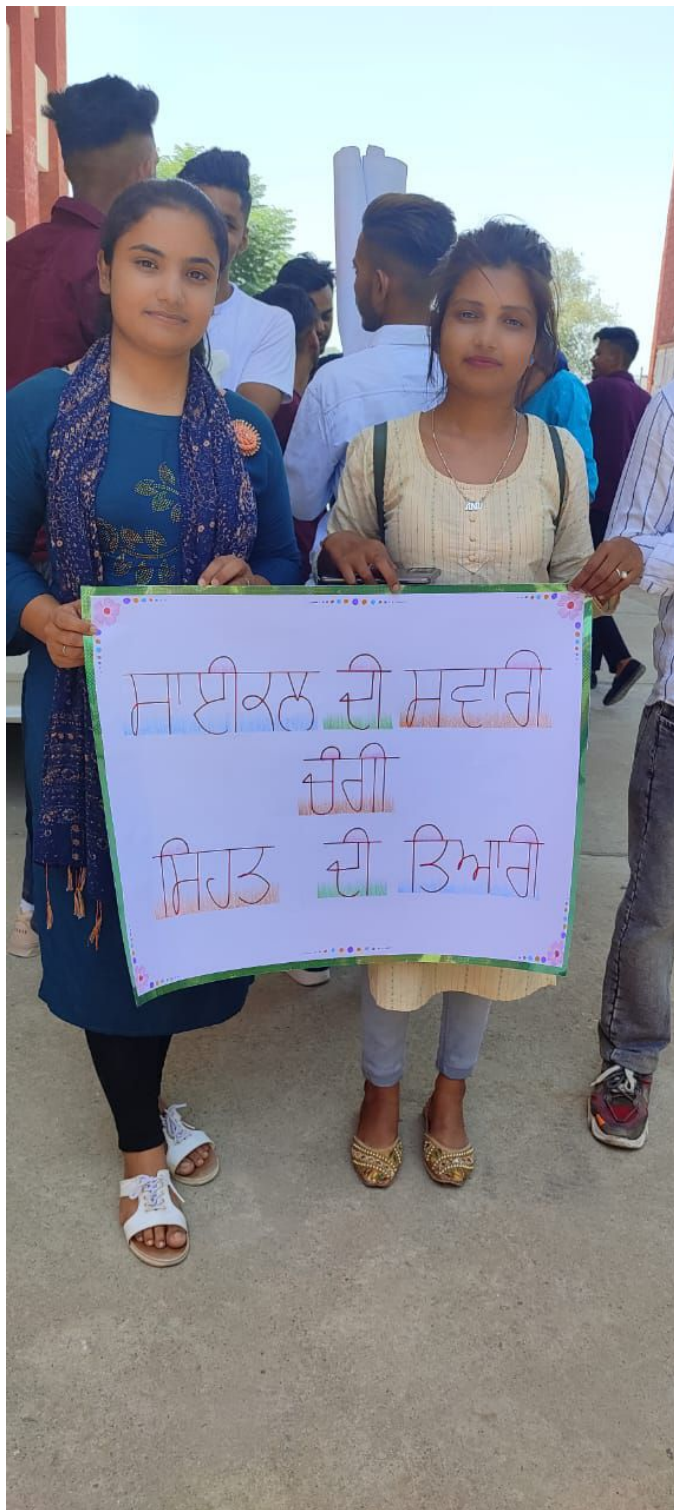 ਸਾਈਕਲ ਦੀ ਸਵਾਰੀ
ਚੰਗੀ
ਸਿਹਤ ਦੀ ਤਿਆਰੀ